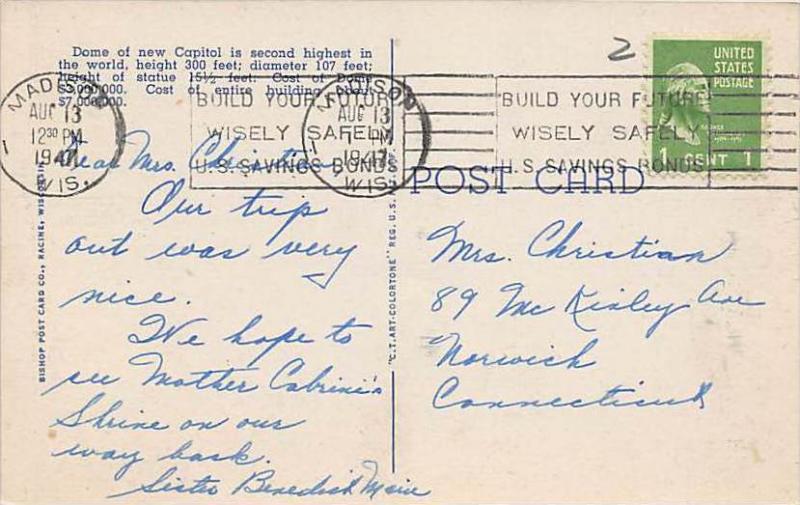 Dome of new Capitol is second highest in
the world, height 300 feet; diameter 107 feet;
height of statue 15½ feet. Cost of Dome
Cost of entire building about
$7,000,000.
2
UNITED
STATES
POSTAGE
1 CENT 1
MADISON
AUG 13
12 30 PM
1947
WIS.
BUILD YOUR FUTURE
WISELY SAFELY
U.S. SAVINGS BONDS
MADISON
AUG 13
1 PM
1947
WIS.
BUILD YOUR FUTURE
WISELY SAFELY
U.S. SAVINGS BONDS
POST CARD
Dear Mrs. Christian
Our trip
out was very
nice.
We hope to
see Mother Cabrini's
Shrine on our
way back.
Sister Benedict Marie
Mrs. Christian
89 Mc Kinley Ave
Norwich
Connecticut
BISHOP POST CARD CO., RACINE, WISCONSIN
"C.T. ART-COLORTONE" REG. U.S.